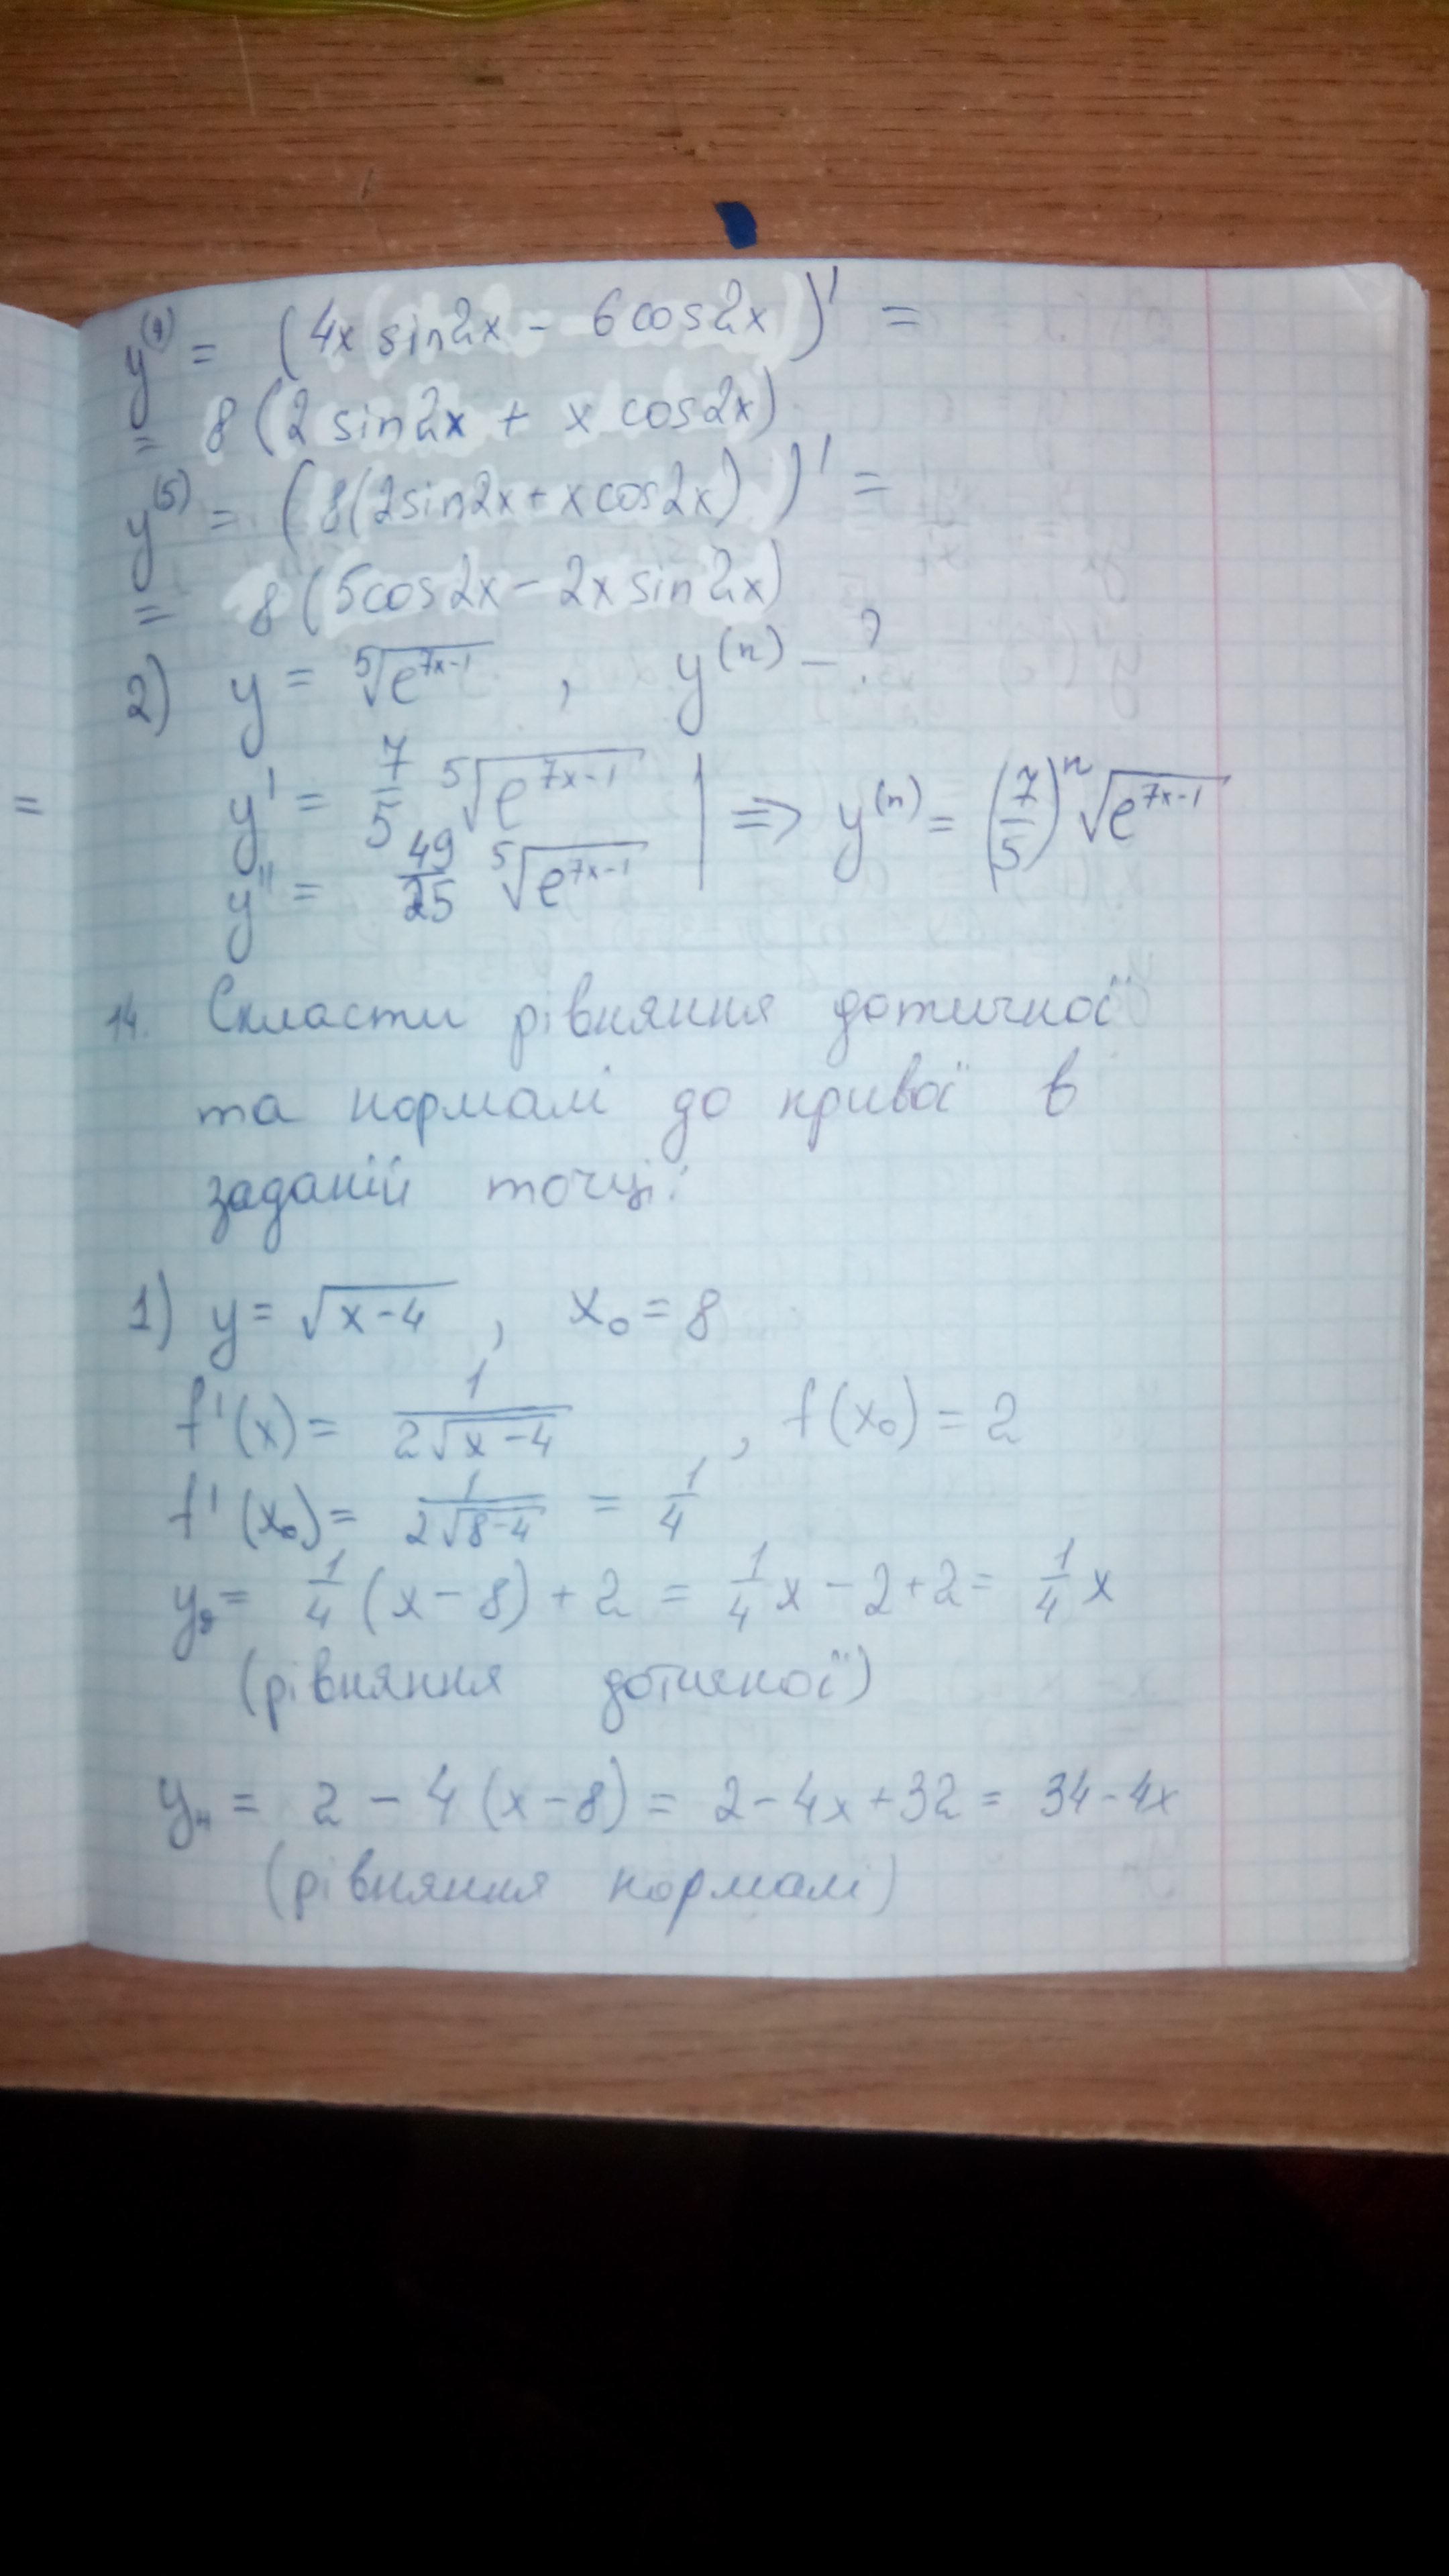 y⁽⁴⁾ = (4x sin2x - 6cos2x)' =
= 8 (2 sin2x + x cos2x)
y⁽⁵⁾ = (8(2sin2x + xcos2x))' =
= 8 (5cos2x - 2x sin2x)
2) y = ⁵√(e^(7x-1)) , y⁽ⁿ⁾ - ?
y' = 7/5 ⁵√(e^(7x-1)) | => y⁽ⁿ⁾ = (7/5)ⁿ √(e^(7x-1))
=
y'' = 49/25 ⁵√(e^(7x-1))
14. Скласти рівняння дотичної
та нормалі до кривої в
заданій точці:
1) y = √(x-4) , x₀ = 8
f'(x) = 1/(2√(x-4)) , f(x₀) = 2
f'(x₀) = 1/(2√(8-4)) = 1/4
yg = 1/4 (x-8) + 2 = 1/4 x - 2 + 2 = 1/4 x
(рівняння дотичної)
yн = 2 - 4(x-8) = 2 - 4x + 32 = 34 - 4x
(рівняння нормалі)